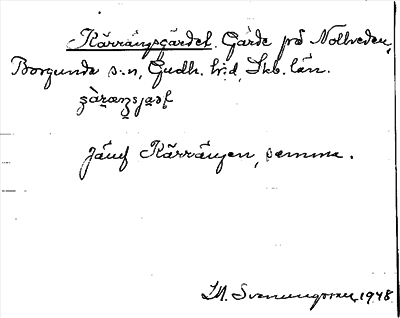 Kärrängsgärdet. Gärde på Nolveden,
Borgunda s:n, Gudh. h:d, Skb. län.
Jämf Kärrängen, samma.
M. Svenungsson 1948